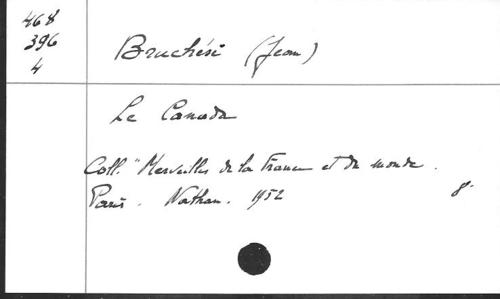 468
396
4
Bruchési (Jean)
Le Canada
Coll. "Merveilles de la France et du monde.
Paris. Nathan. 1952 8°